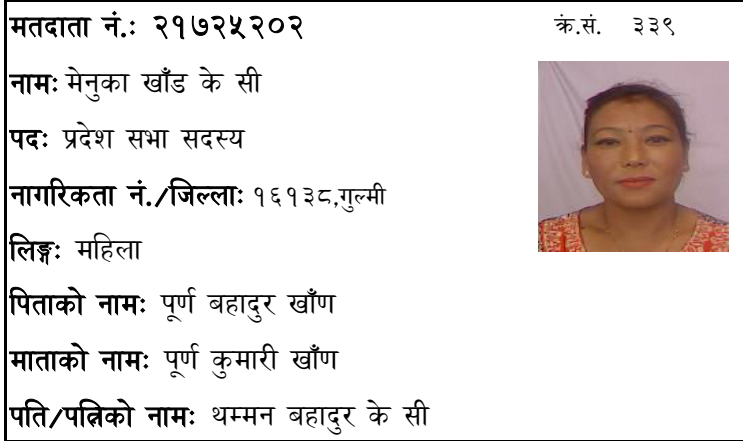 मतदाता नं.: २१७२५२०२ क्रं.सं. ३३९
नामः मेनुका खाँड के सी
पदः प्रदेश सभा सदस्य
नागरिकता नं./जिल्लाः १६१३८,गुल्मी
लिङ्गः महिला
पिताको नामः पूर्ण बहादुर खाँण
माताको नामः पूर्ण कुमारी खाँण
पति/पत्निको नामः थम्मन बहादुर के सी